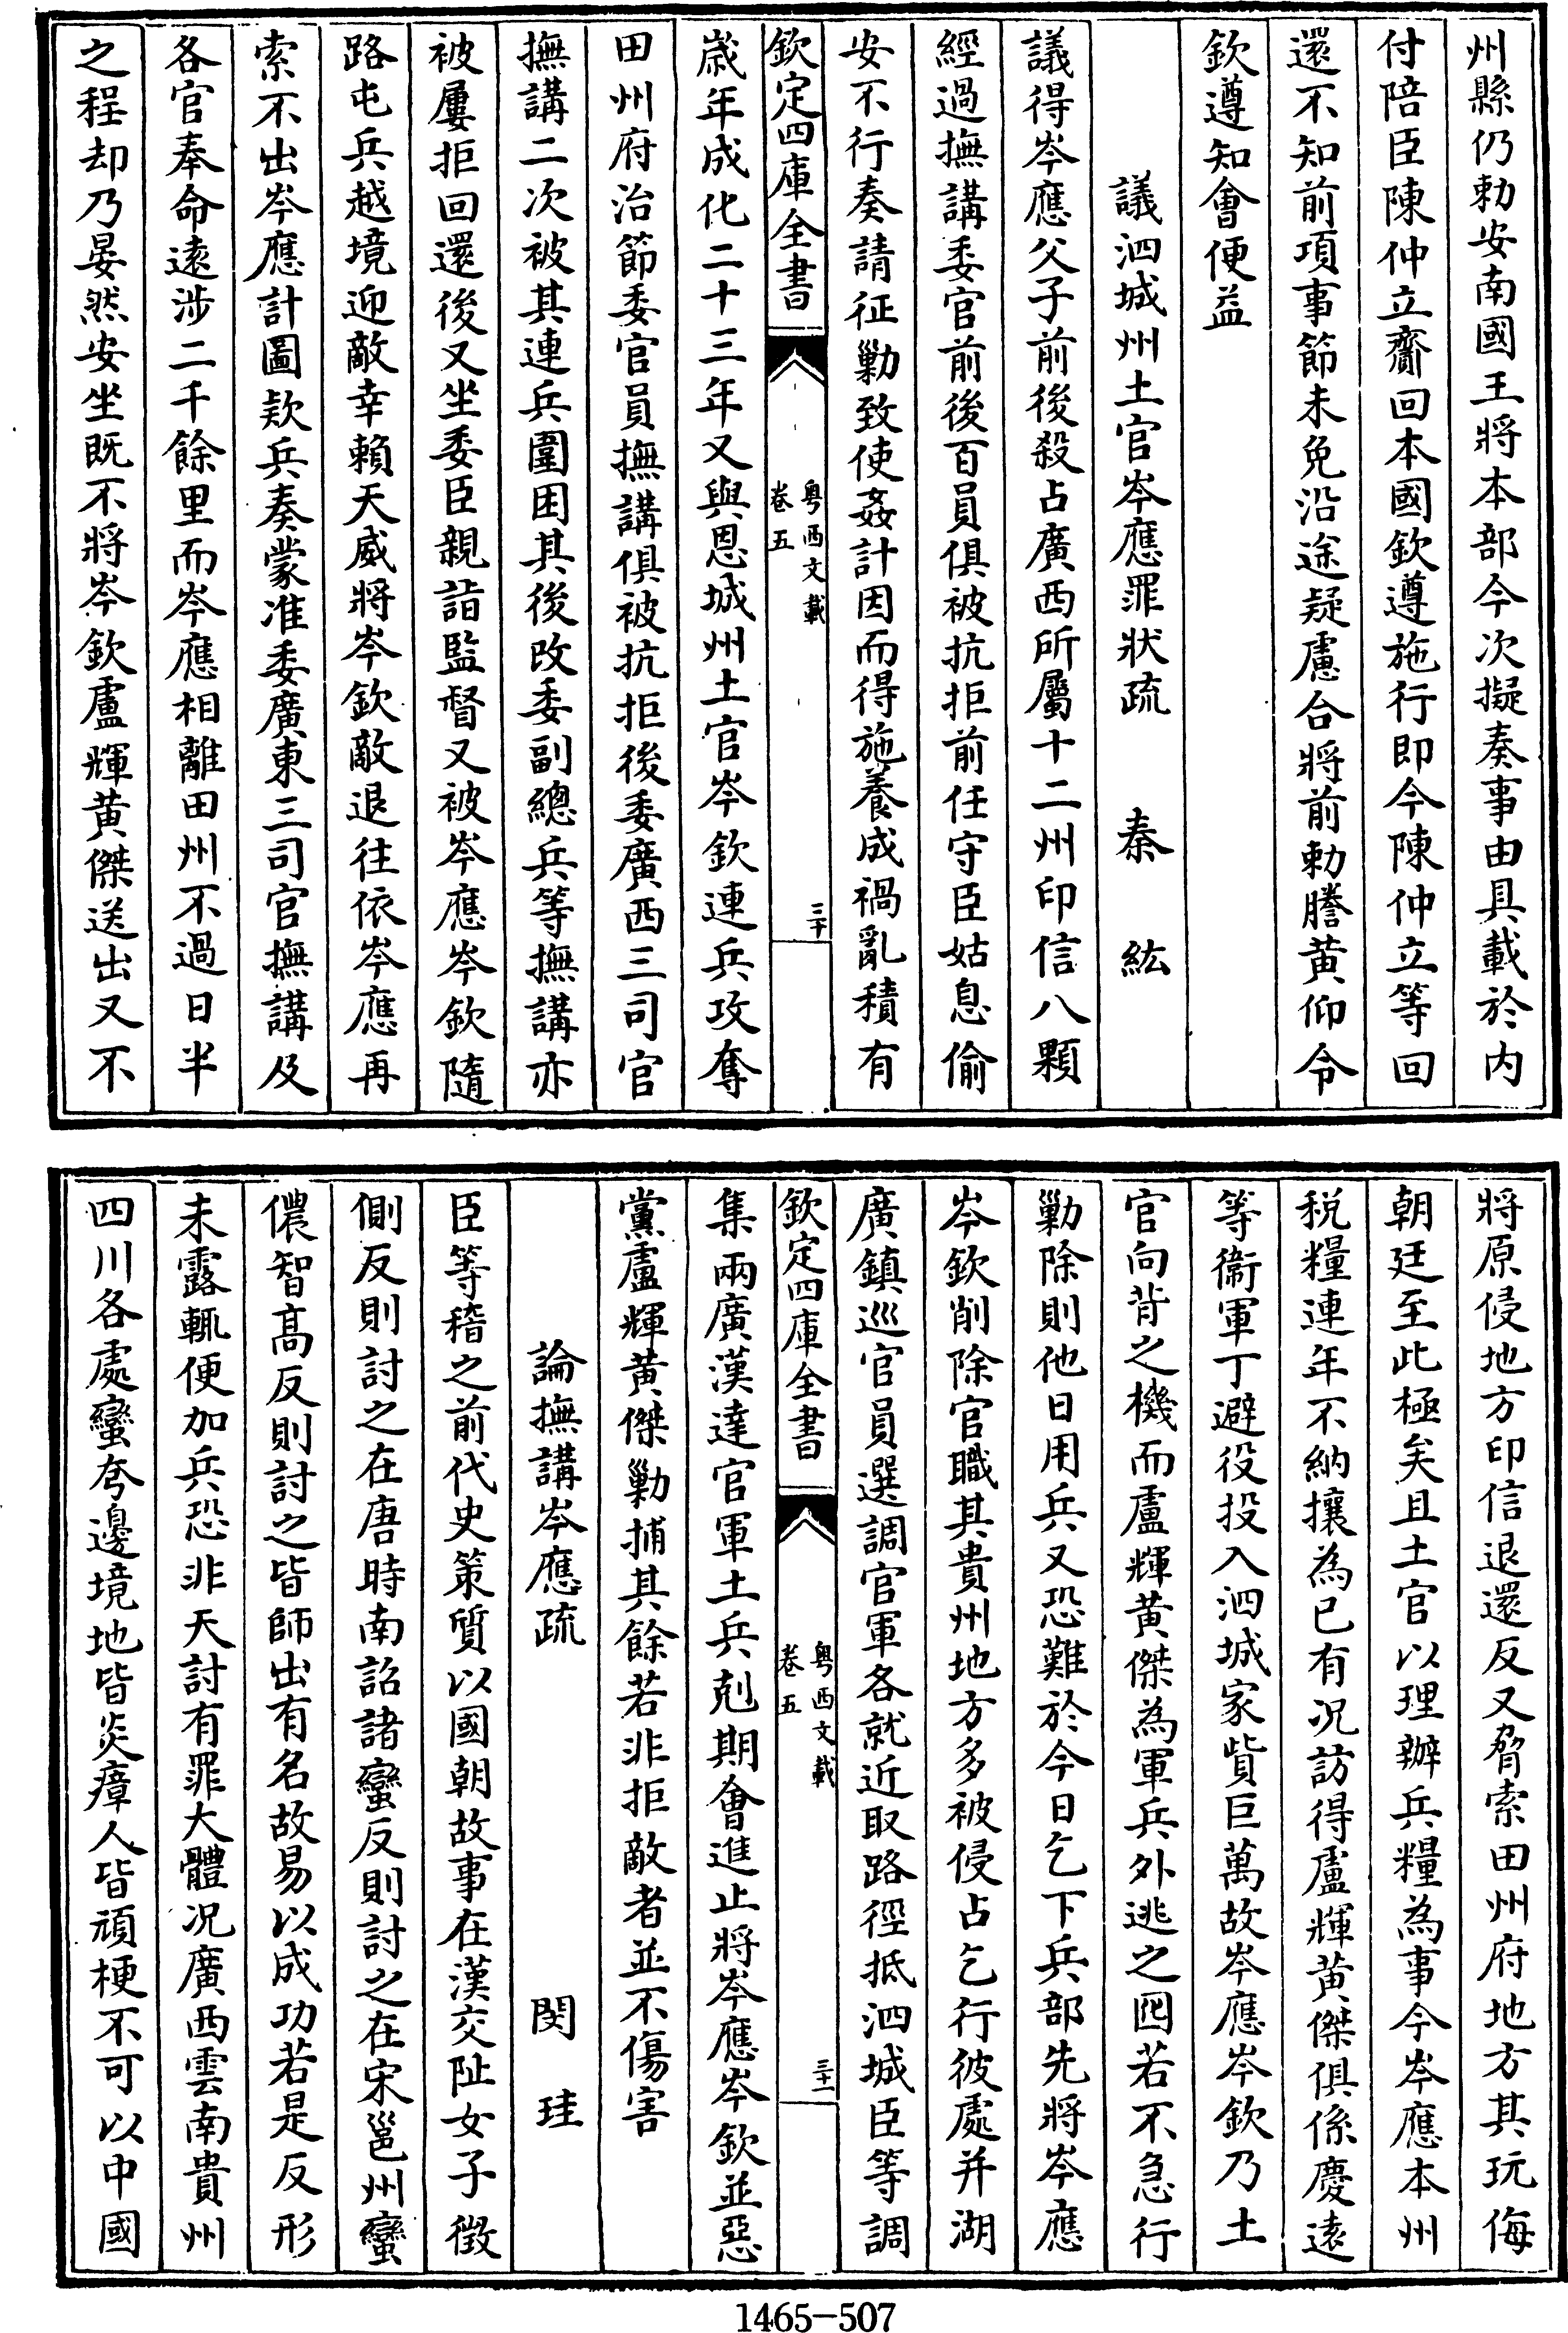 州縣仍勅安南國王將本部今次擬奏事由具載於内
付陪臣陳仲立齎回本國欽遵施行即今陳仲立等回
還不知前項事節未免沿途疑慮合將前勅謄黄仰令
欽遵知會便益
議泗城州土官岑應罪狀疏　秦紘
議得岑應父子前後殺占廣西所屬十二州印信八顆
經過撫講委官前後百員俱被抗拒前任守臣姑息偷
安不行奏請征勦致使姦計因而得施養成禍亂積有
欽定四庫全書　粤西文載　卷五　三十
歲年成化二十三年又與恩城州土官岑欽連兵攻奪
田州府治節委官員撫講俱被抗拒後委廣西三司官
撫講二次被其連兵圍困其後改委副總兵等撫講亦
被屢拒回還後又坐委臣親詣監督又被岑應岑欽隨
路屯兵越境迎敵幸賴天威將岑欽敵退往依岑應再
索不出岑應計圖欵兵奏蒙准委廣東三司官撫講及
各官奉命遠涉二千餘里而岑應相離田州不過日半
之程却乃晏然安坐既不將岑欽盧輝黄傑送出又不
將原侵地方印信退還反又脅索田州府地方其玩侮
朝廷至此極矣且土官以理辦兵糧為事今岑應本州
税糧連年不納攘為已有况訪得盧輝黄傑俱係慶遠
等衞軍丁避役投入泗城家貲巨萬故岑應岑欽乃土
官向背之機而盧輝黄傑為軍兵外逃之囮若不急行
勦除則他日用兵又恐難於今日乞下兵部先將岑應
岑欽削除官職其貴州地方多被侵占乞行彼處并湖
廣鎮巡官員選調官軍各就近取路徑抵泗城臣等調
欽定四庫全書　粤西文載　卷五　三十一
集兩廣漢達官軍土兵剋期會進止將岑應岑欽並惡
黨盧輝黄傑勦捕其餘若非拒敵者並不傷害
論撫講岑應疏　閔珪
臣等稽之前代史策質以國朝故事在漢交阯女子徴
側反則討之在唐時南詔諸蠻反則討之在宋邕州蠻
儂智高反則討之皆師出有名故易以成功若是反形
未露輒便加兵恐非天討有罪大體况廣西雲南貴州
四川各處蠻夸邊境地皆炎瘴人皆頑梗不可以中國
1465-507